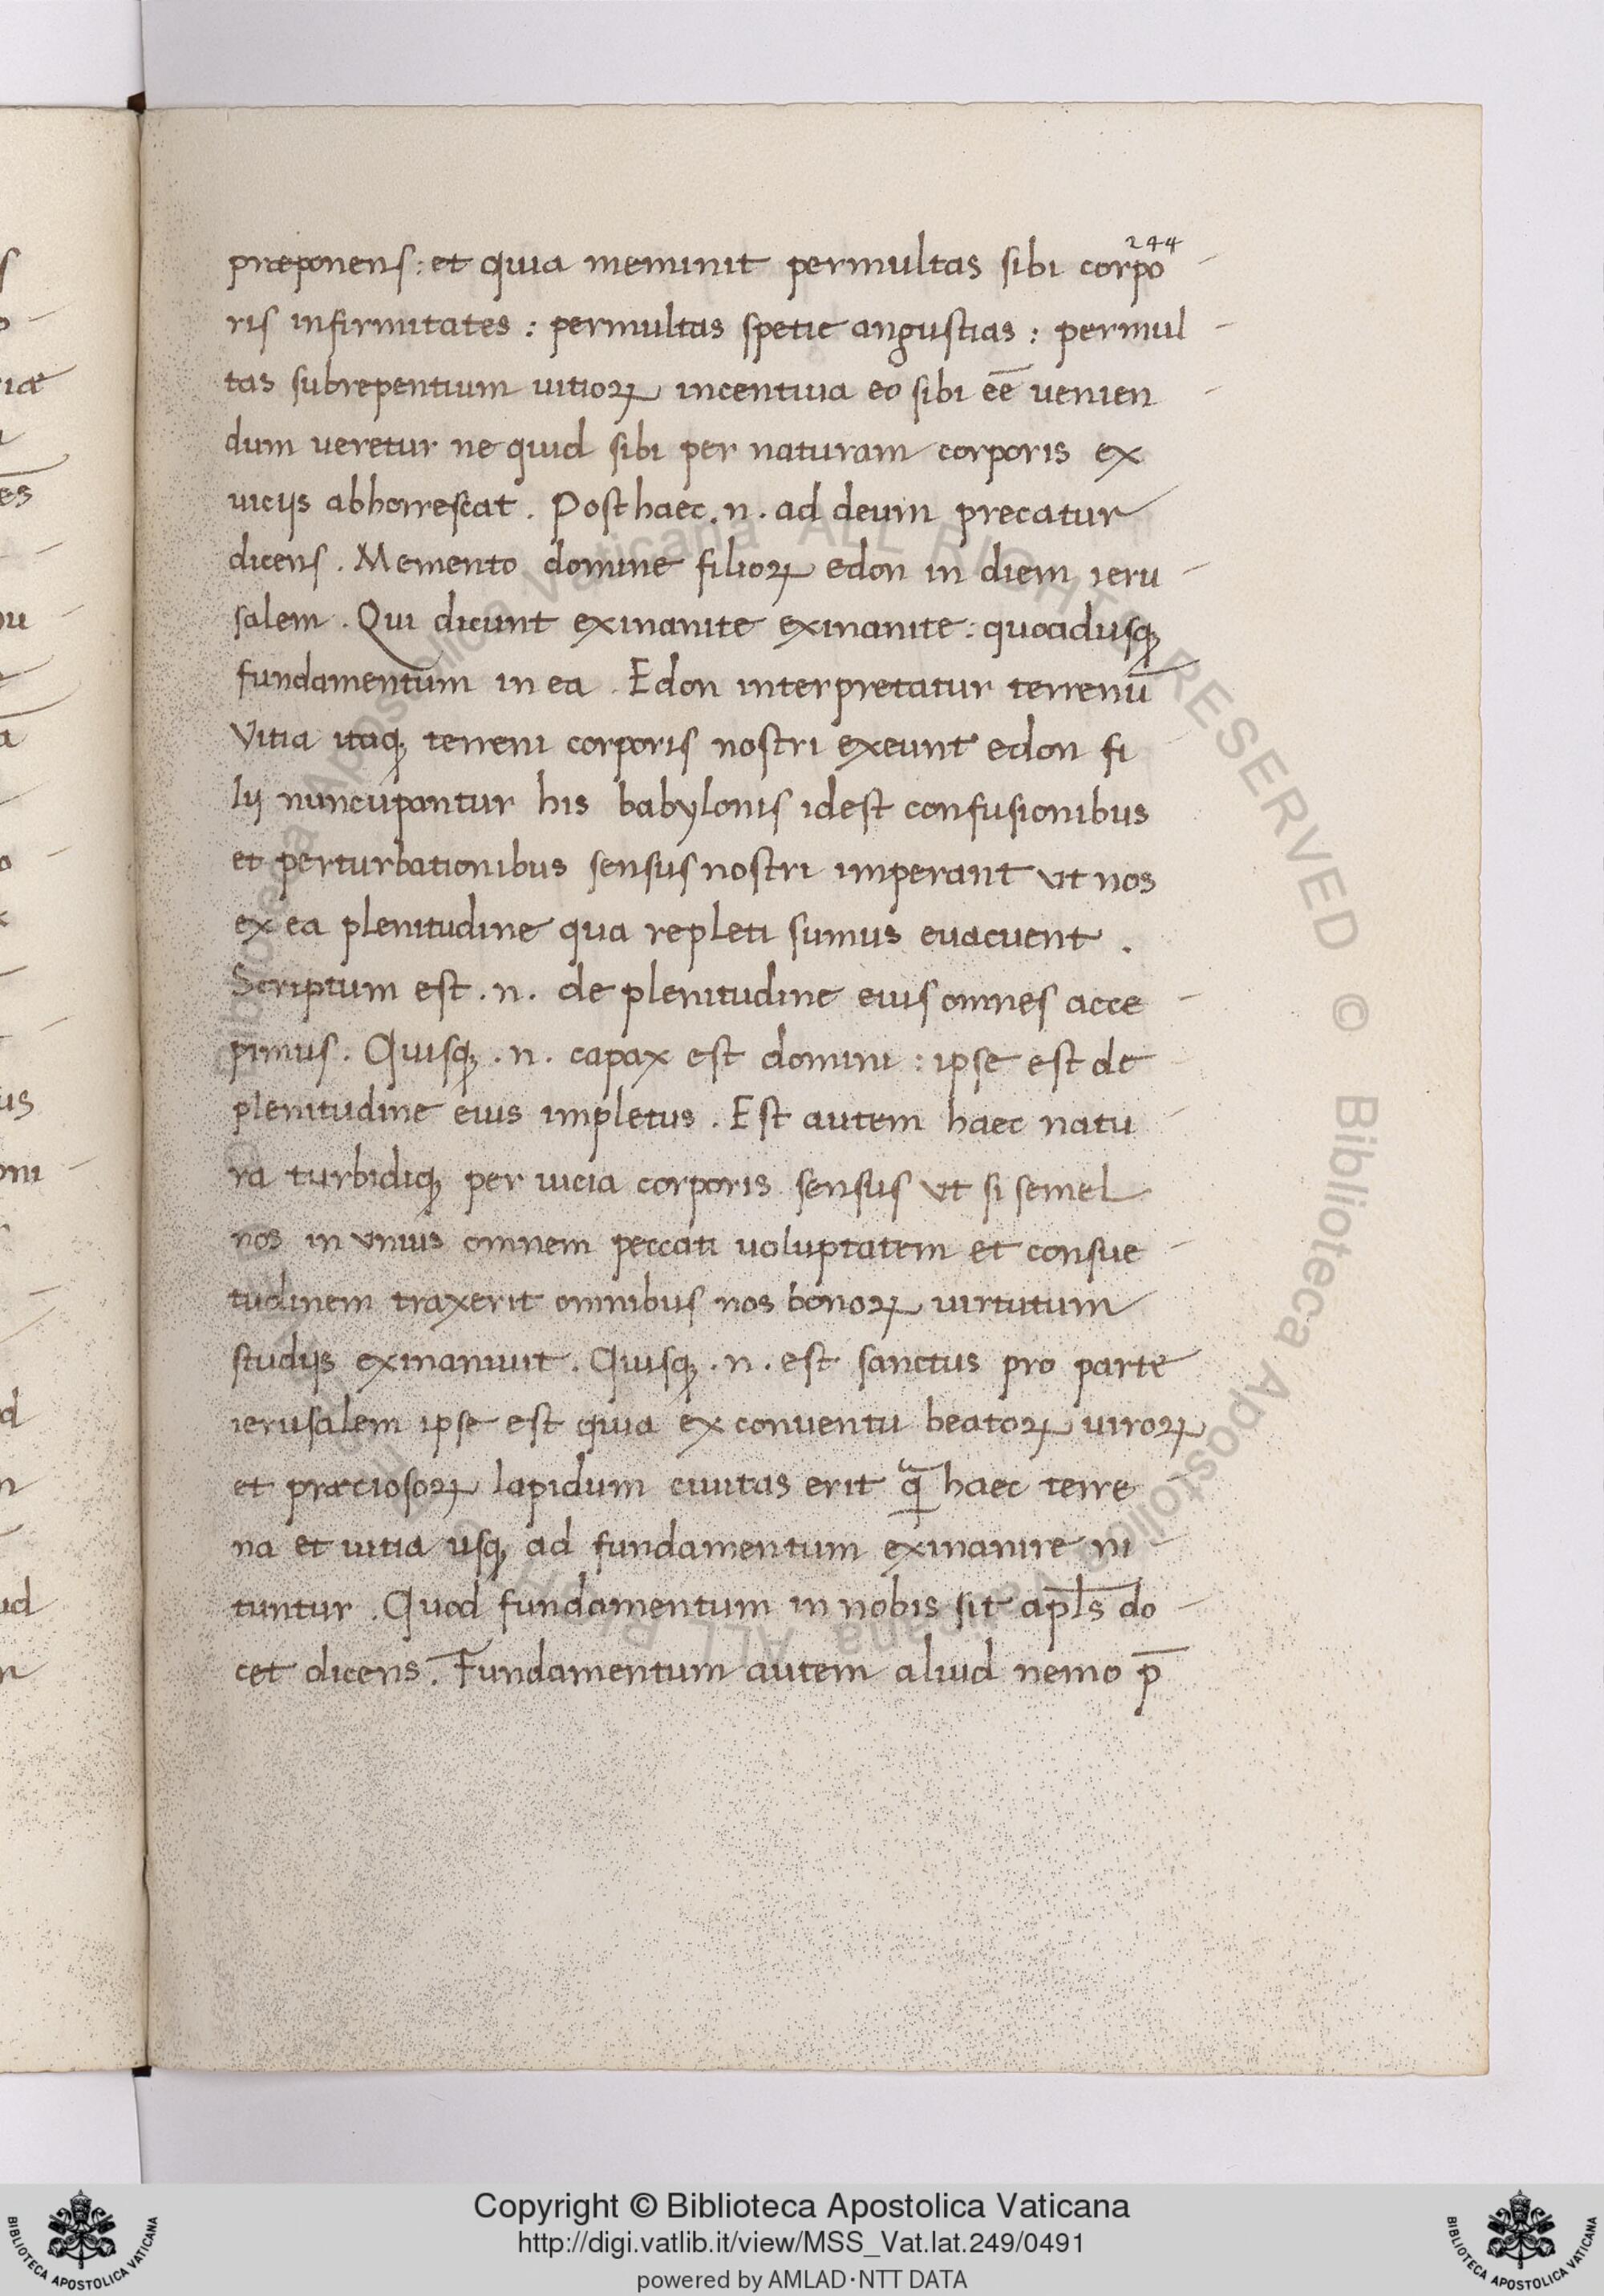 244
præponens: et quia meminit permultas sibi corpo
ris infirmitates: permultas spetie angustias: permul
tas subrepentium uitioꝝ incentiua eo sibi eē uenien
dum ueretur ne quid sibi per naturam corporis ex
uicijs abhorrescat. Post haec .n. ad deum precatur
dicens. Memento domine filioꝝ edon in diem ieru
salem. Qui dicunt exinanite exinanite: quoadusq;
fundamentum in ea. Edon interpretatur terrenū
Vitia itaq; terreni corporis nostri exeunt edon fi
lij nuncupantur his babylonis idest confusionibus
et perturbationibus sensus nostri imperant vt nos
ex ea plenitudine qua repleti sumus euacuent.
Scriptum est .n. de plenitudine eius omnes acce
pimus. Quisq; .n. capax est domini: ipse est de
plenitudine eius impletus. Est autem haec natu
ra turbidiq; per uicia corporis sensus vt si semel
nos in vnius omnem peccati uoluptatem et consue
tudinem traxerit omnibus nos bonoꝝ uirtutum
studijs exinaniuit. Quisq; .n. est sanctus pro parte
ierusalem ipse est quia ex conuentu beatoꝝ uiroꝝ
et præciosoꝝ lapidum ciuitas erit haec terre
na et uitia usq; ad fundamentum exinanire ni
tuntur. Quod fundamentum in nobis sit apl̄s do
cet dicens. Fundamentum autem aliud nemo p̄
Copyright © Biblioteca Apostolica Vaticana
http://digi.vatlib.it/view/MSS_Vat.lat.249/0491
powered by AMLAD·NTT DATA
BIBLIOTECA APOSTOLICA VATICANA
BIBLIOTECA APOSTOLICA VATICANA